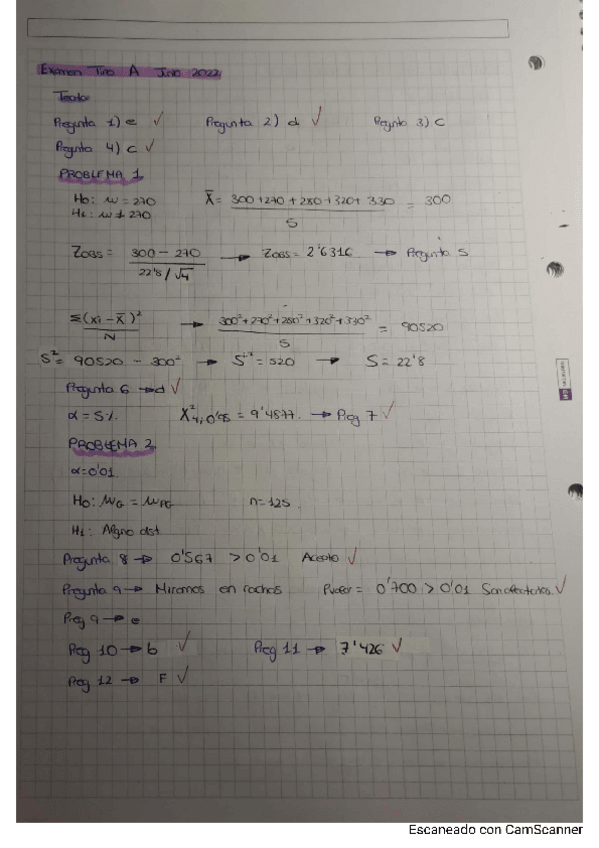 Examen Tipo A Junio 2022
Teoría
Pregunta 1) e ✓ Pregunta 2) d ✓ Pregunta 3) c
Pregunta 4) c ✓
PROBLEMA 1
H₀: μ = 270 X̄ = (300+270+280+320+330)/5 = 300
H₁: μ ≠ 270
Zobs = (300 − 270)/(22'8/√4) → Zobs = 2'6316 → Pregunta 5
Σ(xi − X̄)²/N → (300²+270²+280²+320²+330²)/5 = 90520
S² = 90520 − 300² → S² = 520 → S = 22'8
Pregunta 6 → d ✓
α = 5%. X²₄,₀'₉₅ = 9'4877. → Preg 7 ✓
PROBLEMA 2
α = 0'01.
H₀: μG = μPG n = 125.
H₁: Algno dist
Pregunta 8 → 0'567 > 0'01 Acepto ✓
Pregunta 9 → Miramos en rachas Pvalor = 0'700 > 0'01 Son aleatorios. ✓
Preg 9 → e
Preg 10 → b ✓ Preg 11 → 7'426 ✓
Preg 12 → F ✓
Escaneado con CamScanner